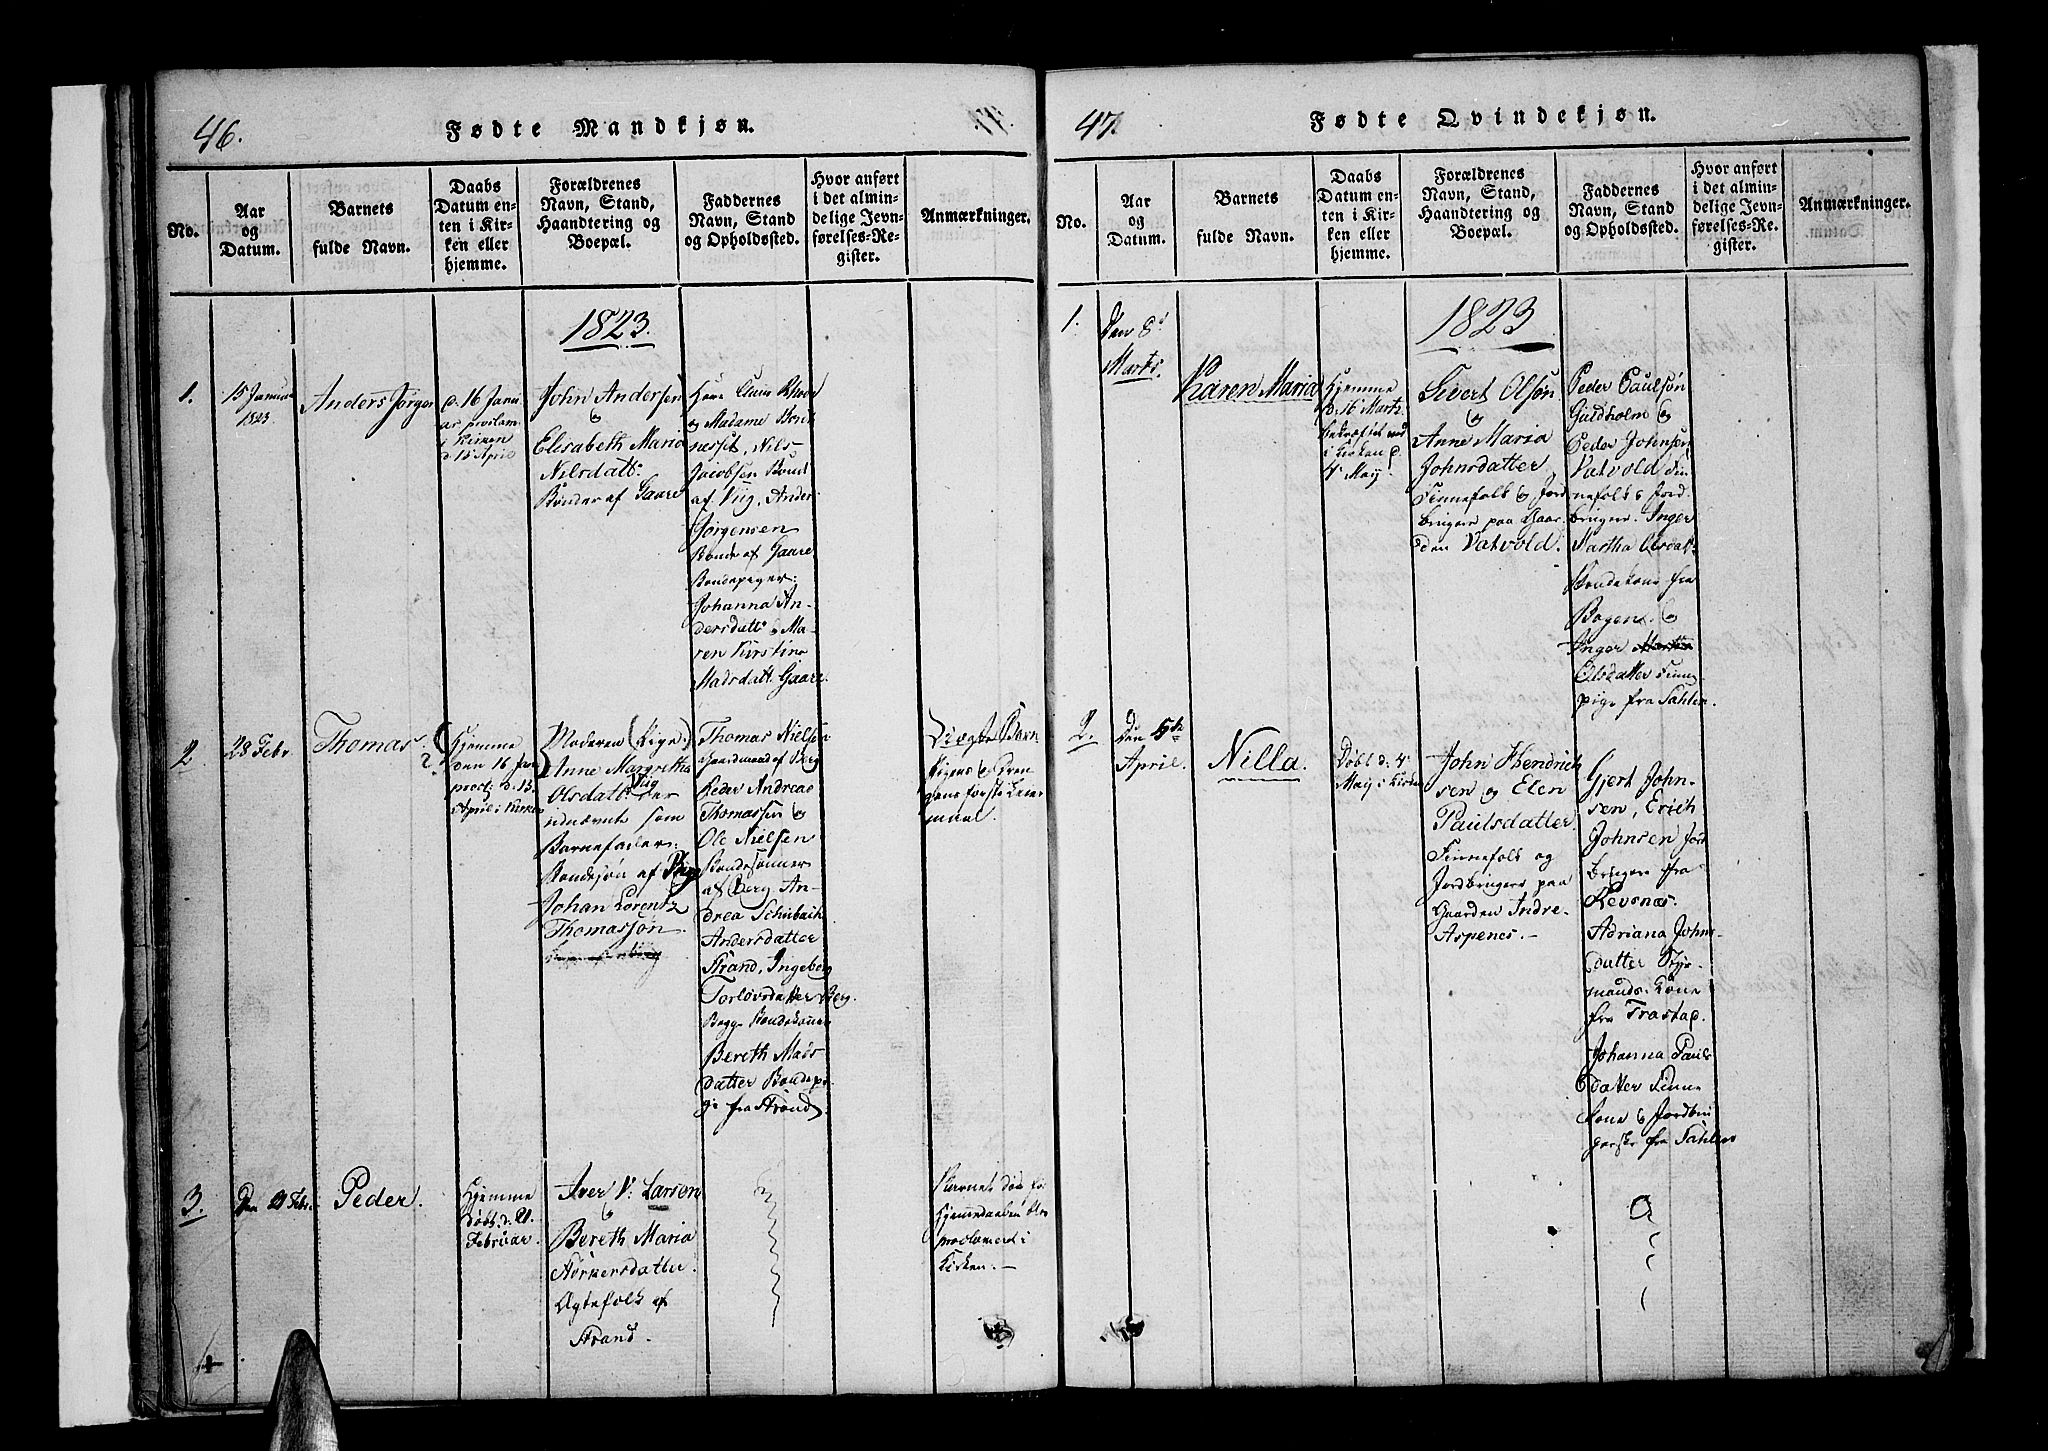 46.
Fødte Mandkjøn.
No.
Aar
og
Datum.
Barnets
fulde Navn.
Daabs
Datum en-
ten i Kir-
ken eller
hjemme.
Forældrenes
Navn, Stand,
Haandtering og
Boepæl.
Faddernes
Navn, Stand
og Opholdssted.
Hvor anført
i det almin-
delige Jevn-
førelses-Re-
gister.
Anmærkninger.
1823.
1.
15 Januar
1823
Anders Jørgen
d. 16 Janu
ar proclam
i Kirken
d. 15 April
John Andersen
&
Elisabeth Maria
Nilsdatt:
Bønder af Gaare
og Madame Bent
nesset, Nils
Jacobsen Bond
af Viig, Anders
Jørgensen
Bonde af Gaare
Bondepeger:
Johanna An-
dersdatt: & Ma-
ren Kirstine
Madsdatt: Gaare.
2
28 Febr.
Thomas.
Hjemme
den 16 Jan
procl. d. 13
April i Kirken
Moderen (Pige)
Anne Margretha
Olsdatt: Viig der
udnævnte som
Barnefader:
Bondesøn af Viig
Johan Lorentz
Thomassøn.
Thomas Nielsen
Gaardmand af Berg
Peder Andreas
Thomassen &
Ole Nielsen
Bondesønner
af Berg An-
drea Schibach
Andersdatter
Strand, Ingeborg
Torlovsdatter Berg.
Begge Bondekoner
Bereth Mads
datter Bondepi
ge fra Strand.
Uægte Barn
Pigens & Dren
gens første Leier
maal.
3.
Den 21 Febr.
Peder.
Hjemme
døbt d. 21
Februar.
Iver V: Larsen
&
Bereth Maria
Størkersdatter.
Ægtefolk af
Strand.
Barnet døde før
Hjemmedaaben blev
proclameret i
Kirken.-
47.
Fødte Qvindekjøn.
No.
Aar
og
Datum.
Barnets
fulde Navn.
Daabs
Datum en-
ten i Kir-
ken eller
hjemme.
Forældrenes
Navn, Stand,
Haandtering og
Boepæl.
Faddernes
Navn, Stand
og Opholdssted.
Hvor anført
i det almin-
delige Jevn-
førelses-Re-
gister.
Anmærkninger.
1823
1.
Den 8d
Marts.
Karen Maria
Hjemme
d. 16 Marts
bekræftet ved
i Kirken d.
4 May.
Sivert Olsøn
&
Anne Maria
Johnsdatter
Finnefolk & Jord
brugere paa Gaar
den Vatvold.
Peder Paulsøn
Guldholm &
Peder Johnsen
Vatvold Fin
nefolk & Jord
brugere. Inger
Martha Olsdat:
Bondekone fra
Bogen. &
Inger Martha
Olsdatter Finne
pige fra Sahlen.
2.
Den 5te
April.
Nilla.
Døbt d. 4
May i Kirken
John Hendrick
sen og Elen
Paulsdatter.
Finnefolk og
Jordbrugere paa
Gaarden Indre-
Aspenes.-
Gjert John-
sen, Erich
Johnsen Jord
brugere fra
Revenæs.
Adriana Johns
datter Styr-
mands Kone
fra Trastad.
Johanna Pauls
datter Finne
kone & Jordbru
gerske fra Sahlen